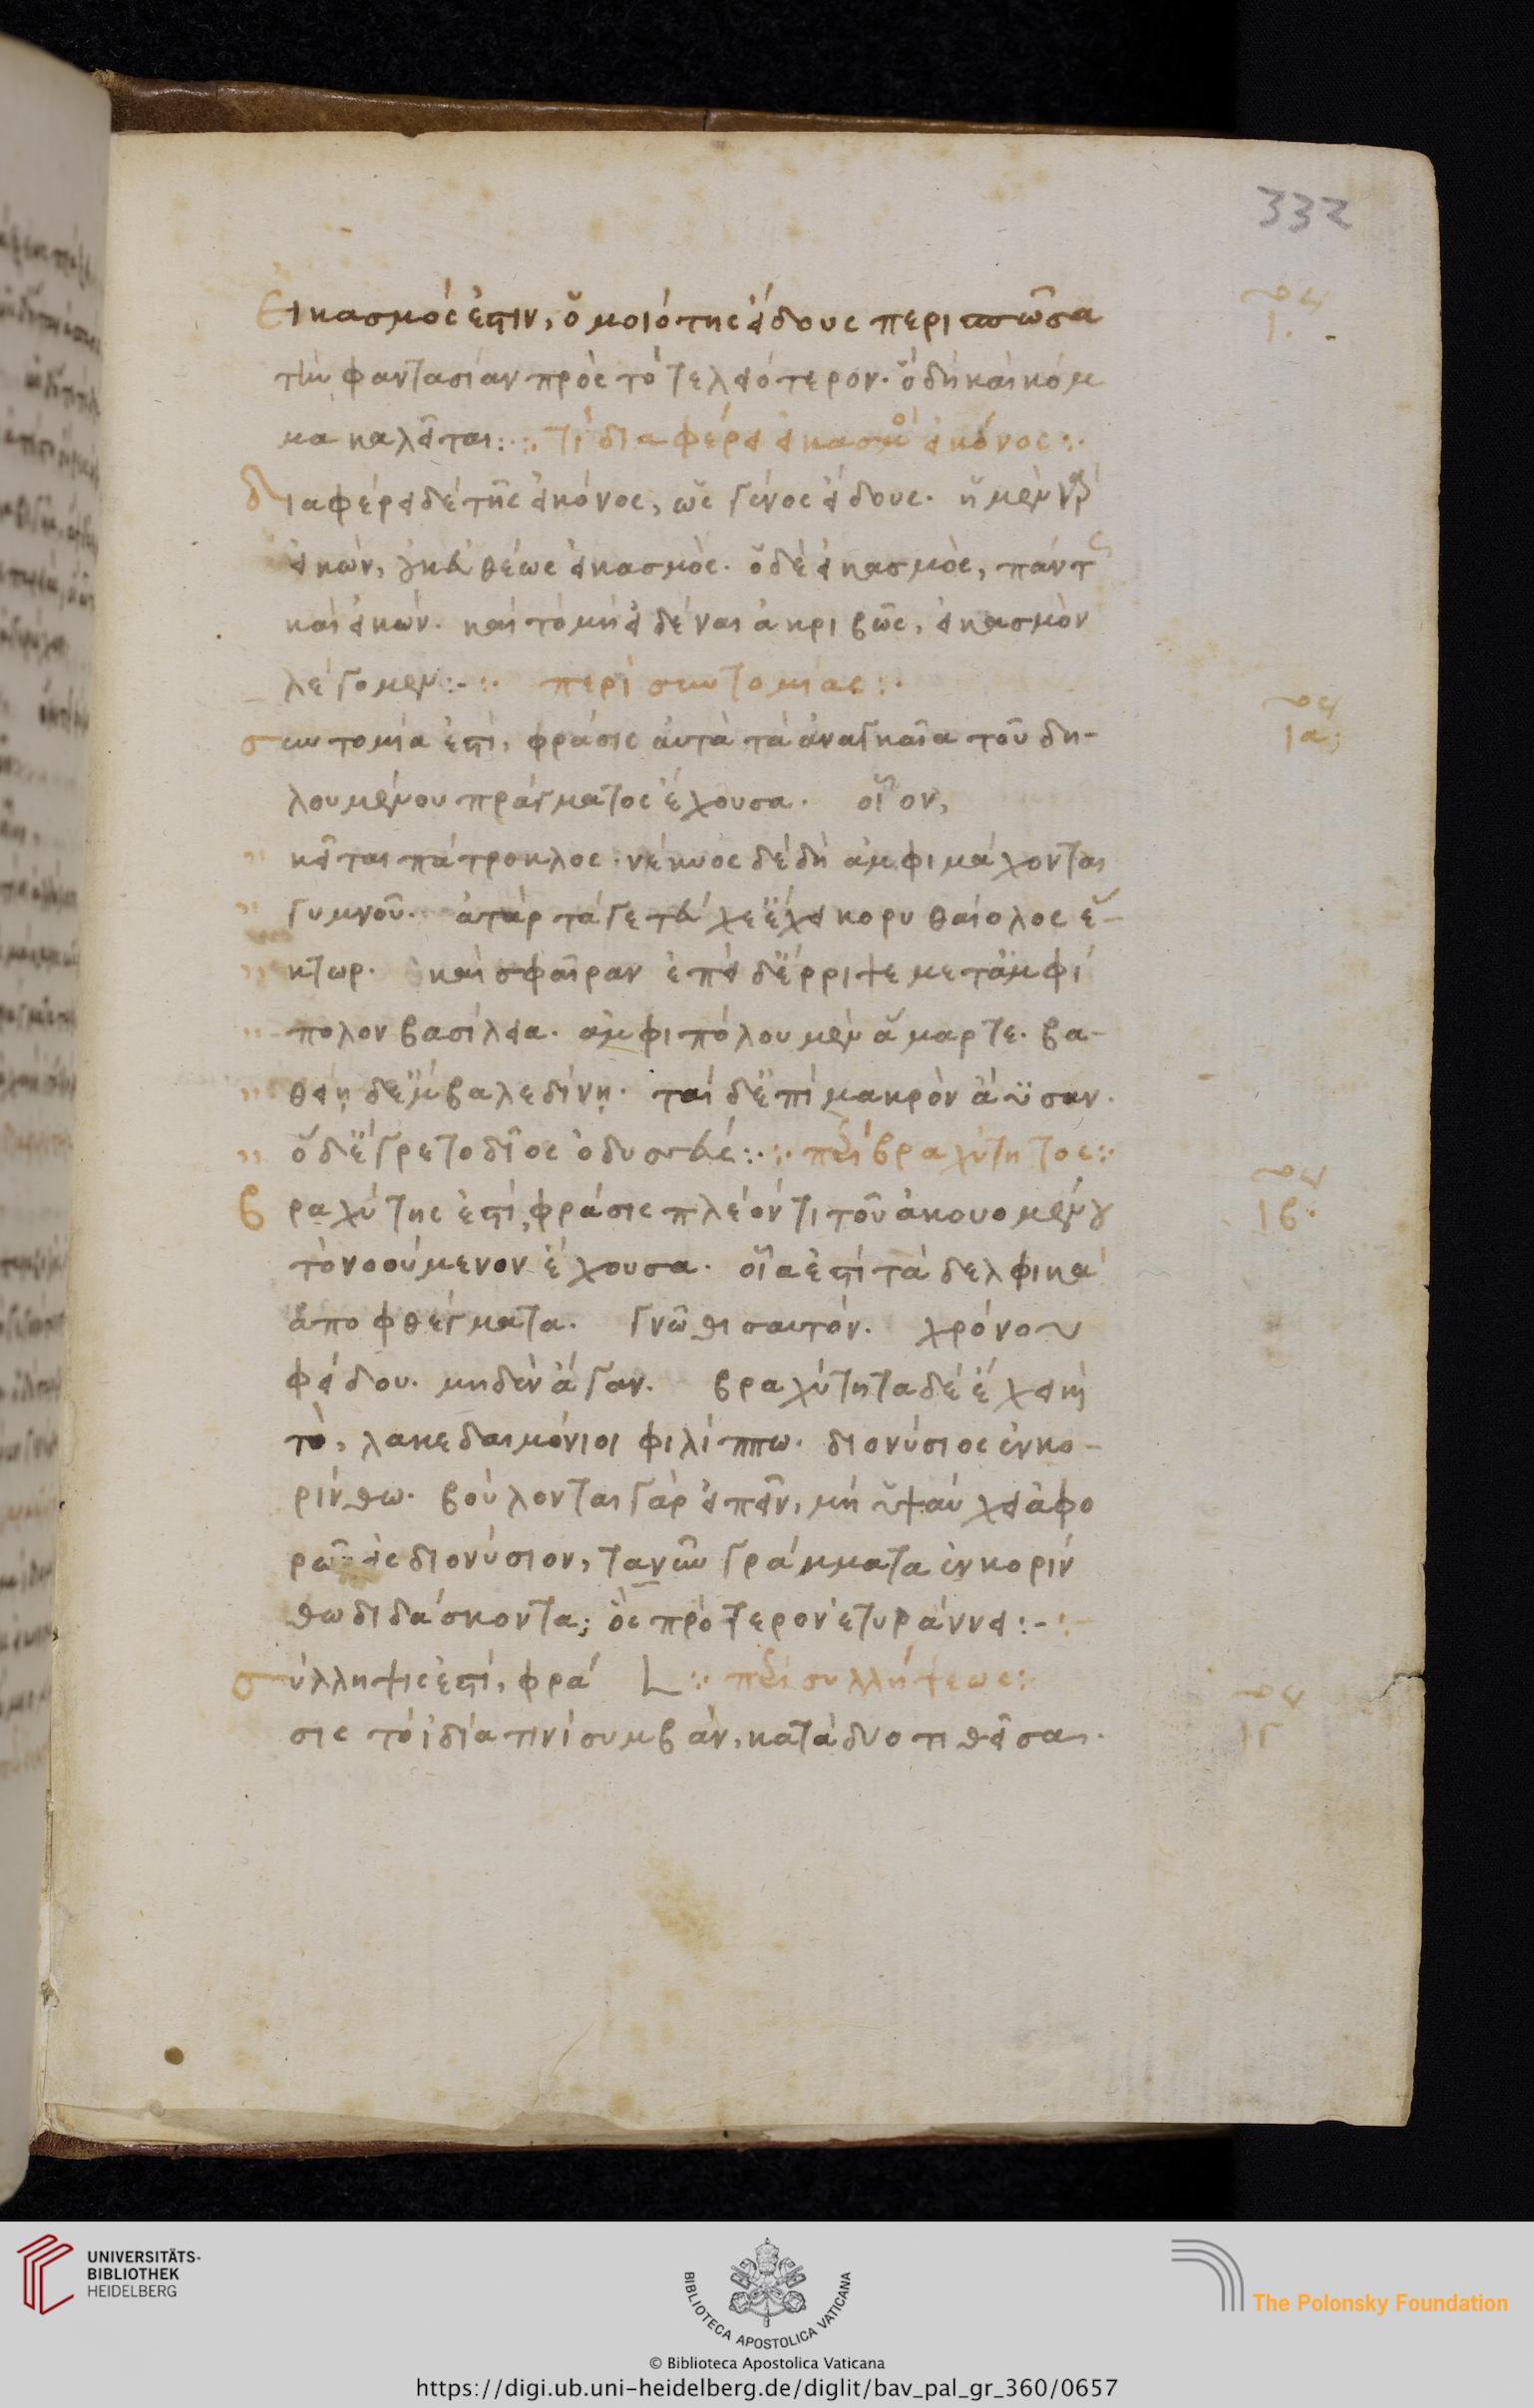 332
Εἰκασμός ἐστιν, ὁμοιότης εἴδους περιπίπτωσα
τὴν φαντασίαν πρὸς τὸ τελειότερον. ὃ δὴ καὶ κόμ
μα καλεῖται: τί διαφέρει εἰκασμοῦ εἰκόνος:
διαφέρει δὲ τῆς εἰκόνος, ὡς γένος εἴδους. ἡ μὲν γὰρ
εἰκὼν, οὐκ εὐθέως εἰκασμὸς. ὁ δὲ εἰκασμὸς, πάντως
καὶ εἰκών. καὶ τὸ μὴ εἰδέναι ἀκριβῶς, εἰκασμὸν
λέγομεν:- περὶ συντομίας:
ια
συντομία ἐστὶ, φράσις αὐτὰ τὰ ἀναγκαῖα τοῦ δη-
λουμένου πράγματος ἔχουσα. οἷον,
κεῖται πάτροκλος. νέκυος δὲ δὴ ἀμφιμάχονται
γυμνοῦ. ἀτὰρ τά γε τεύχε ἔχει κορυθαίολος ἕ-
κτωρ. καὶ σφαῖραν ἐπεὶ δ ἔρριψε μετ ἀμφί
πολον βασίλεια. ἀμφιπόλου μὲν ἅμαρτε. βα-
θείῃ δ ἔμβαλε δίνῃ. ταί δ ἐπὶ μακρὸν ἄϋσαν.
ὁ δ ἔγρετο δῖος ὀδυσσεύς: περὶ βραχύτητος:
ιβ
βραχύτης ἐστὶ, φράσις πλέόν τι τοῦ ἀκουομένου
τὸ νοούμενον ἔχουσα. οἷά ἐστι τὰ δελφικὰ
ἀποφθέγματα. γνῶθι σαυτόν. χρόνου
φείδου. μηδὲν ἄγαν. βραχύτητα δὲ ἔχει καὶ
τὸ, λακεδαιμόνιοι φιλίππω. διονύσιος ἐν κο-
ρίνθω. βούλονται γὰρ εἰπεῖν, μὴ ὑψαύχει ἀφο
ρῶν εἰς διονύσιον, τανῦν γράμματα ἐν κοριν
θω διδάσκοντα; ὃς πρότερον ἐτυράννει:-
σύλληψις ἐστὶ, φρά περὶ συλλήψεως:
ιγ
σις τὸ ἰδία τινὶ συμβὰν, κατὰ δύο τιθεῖσα.
UNIVERSITÄTS-
BIBLIOTHEK
HEIDELBERG
BIBLIOTECA APOSTOLICA VATICANA
The Polonsky Foundation
© Biblioteca Apostolica Vaticana
https://digi.ub.uni-heidelberg.de/diglit/bav_pal_gr_360/0657